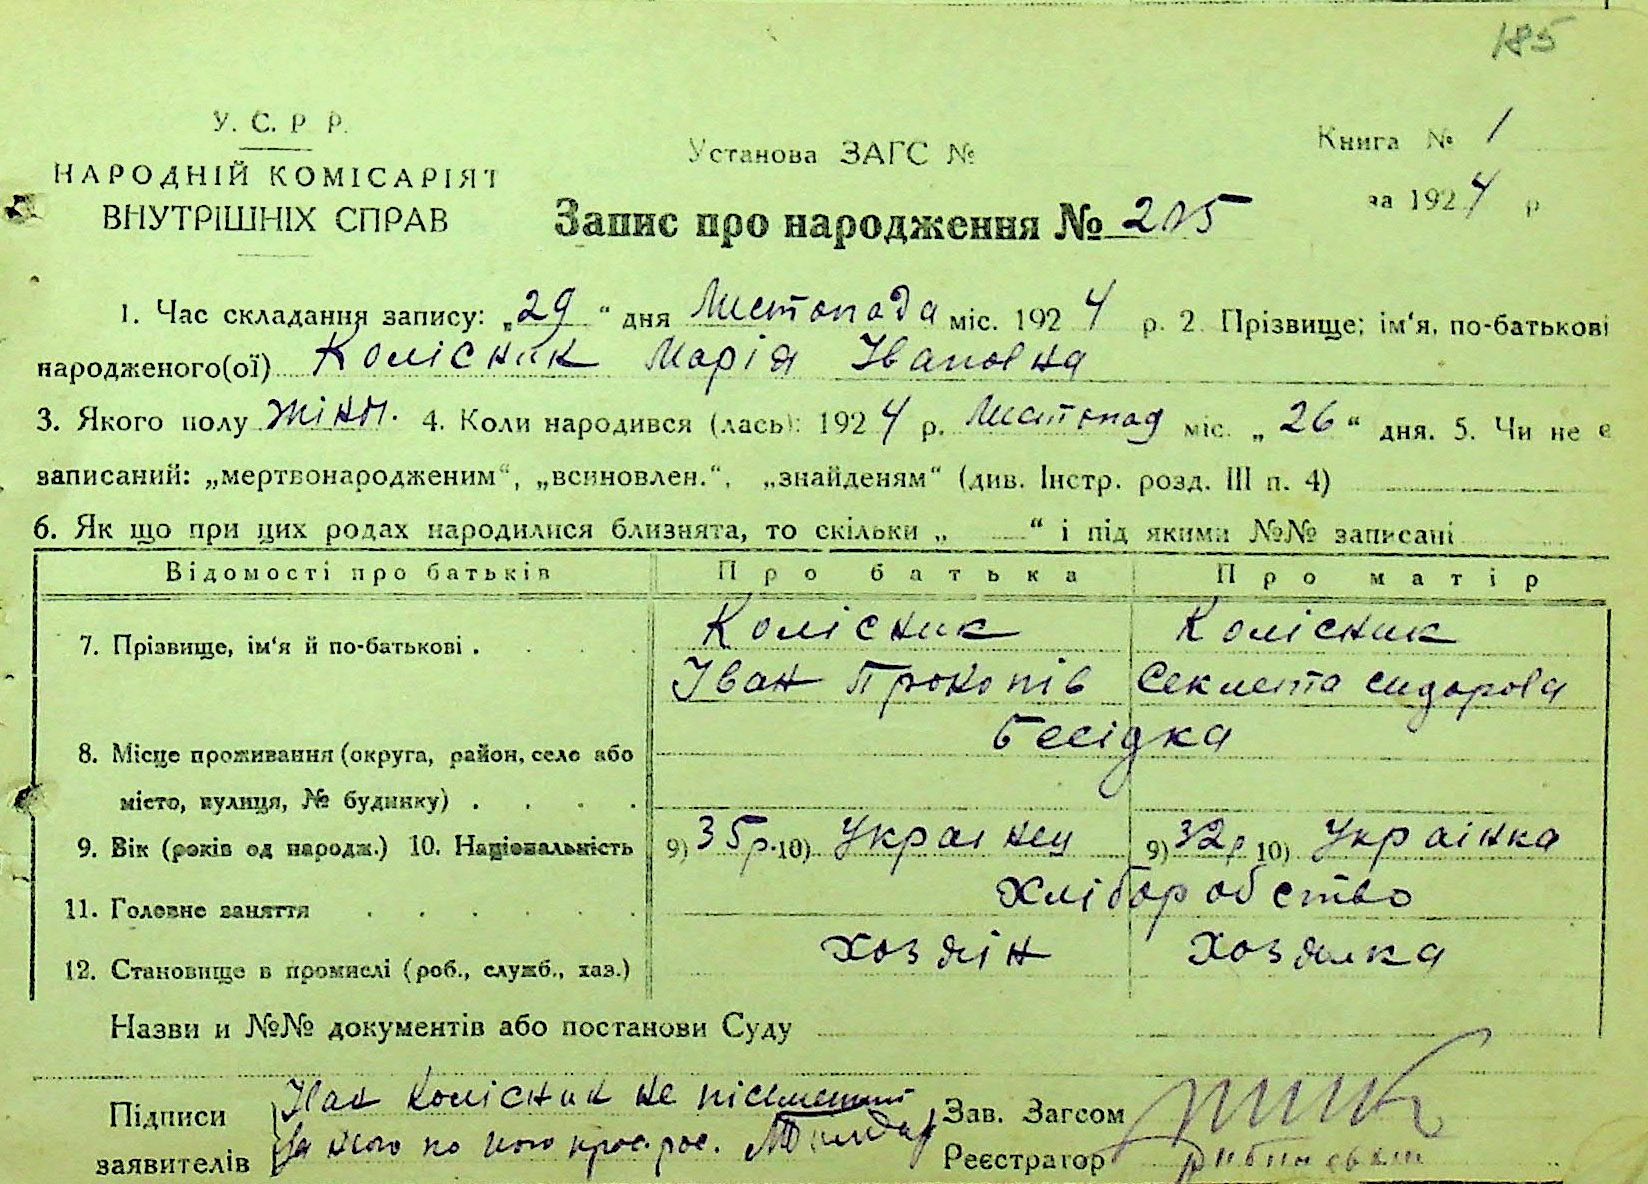 185
У. С. Р. Р.
НАРОДНІЙ КОМІСАРІЯТ
ВНУТРІШНІХ СПРАВ
Установа ЗАГС №
Книга № 1
за 1924 р
Запис про народження № 215
1. Час складання запису: „29“ дня Листопада міс. 1924 р. 2. Прізвище; ім‘я, по-батькові
народженого(ої) Колісник Марія Івановна
3. Якого полу жіно. 4. Коли народився (лась): 1924 р. Листопад міс. „26“ дня. 5. Чи не є
записаний: „мертвонародженим“, „всиновлен.“, „знайденям“ (див. Інстр. розд. III п. 4)
6. Як що при цих родах народилися близнята, то скільки „ “ і під якими №№ записані
Відомості про батьків Про батька Про матір
7. Прізвище, ім‘я й по-батькові . Колісник Колісник
Іван Прокопів Секлета сидорова
Бесідка
8. Місце проживання (округа, район, село або
місто, вулиця, № будинку) .
9. Вік (років од народж.) 10. Національність 9) 35 р. 10) Украінец 9) 32 р 10) Украінка
11. Головне заняття хліборобство
12. Становище в промислі (роб., служб., хаз.) хозяін хозяйка
Назви и №№ документів або постанови Суду
Підписи Іван Колісник не пісьмений Зав. Загсом
заявителів за його по його прос. рос. Реєстратор